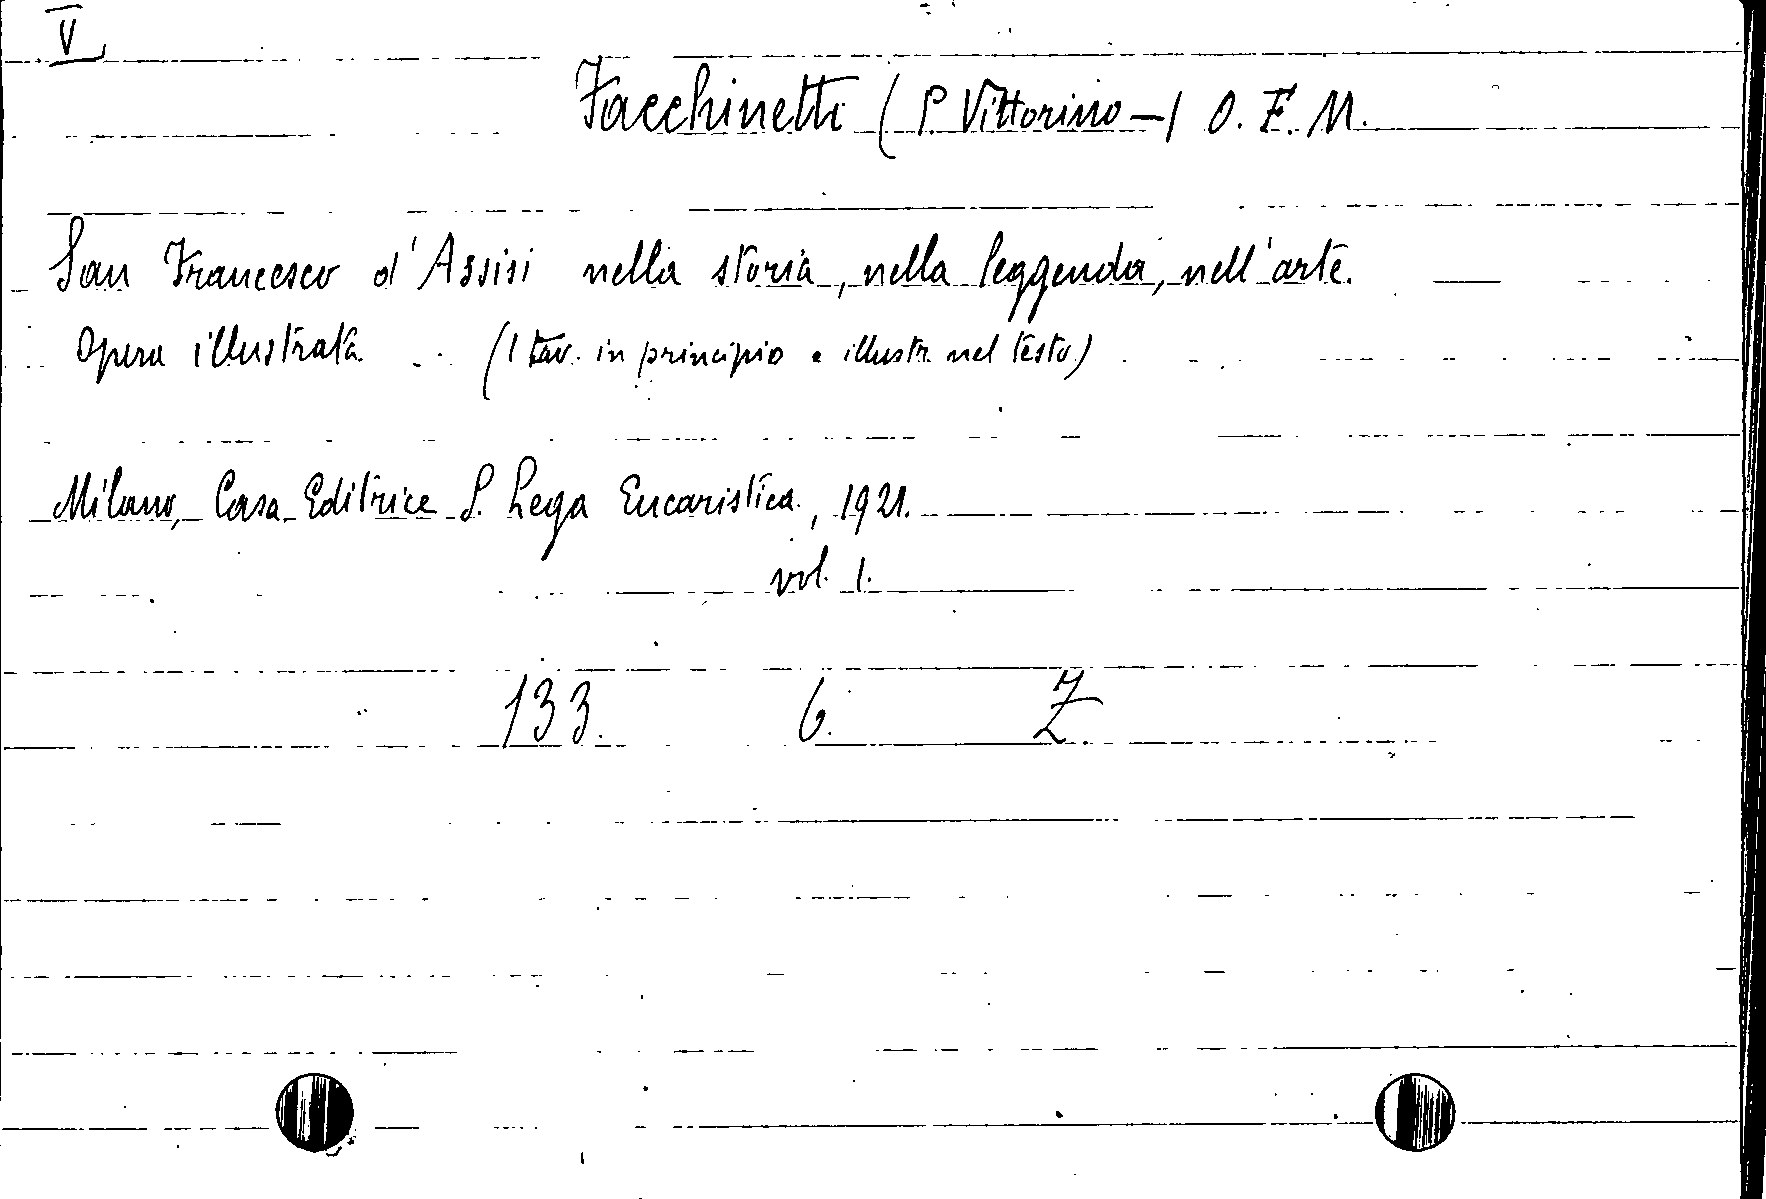 V
Facchinetti (P. Vittorino —) O. F. M.
San Francesco d'Assisi nella storia, nella leggenda, nell'arte.
Opera illustrata. (1 tav. in principio e illustr. nel testo)
Milano, Casa Editrice S. Lega Eucaristica, 1921.
vol. 1.
133. 6. Z.